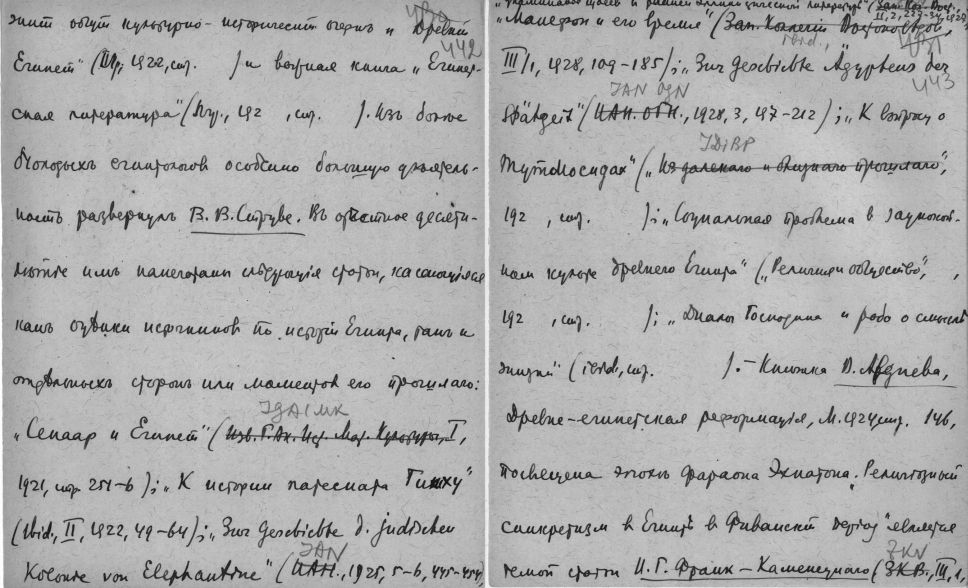 442
Египет" (Пгр, 1922, стр. ) и вторая книга „Египет-
ская литература" (Пгр., 192 , стр. ). Изъ более
молодыхъ египтологов особенно большую деятель-
ность развернулъ В. В. Струве. Въ отчетное десяти-
летие имъ напечатаны следующiя статьи, касающiяся
какъ оценки источников по исторiи Египта, такъ и
отдельныхъ сторонъ или моментов его прошлаго:
IGAIMK
„Сенаар и Египет" (Изв. Г. Ак. Ист. Мат. Культуры, I,
1921, стр. 251-6); „К истории патесиата Гишху"
(Ibid., II, 1922, 49-64); „Zur Geschichte d. jüdischen
IAN
Kolonie von Elephantine" (ИАН., 1925, 5-6, 445-454)
„Манефон и его время" (Зап. Коллегии Востоковедов,
ibid.,
III/1, 1928, 109-185); „Zur Geschichte Ägyptens der
443
IAN OGN
Spätzeit" (ИАН. ОГН., 1928, 3, 197-212); „К вопросу о
IDiBP
Тутмосидах" („Из далекаго и близкаго прошлаго",
192 , стр. ); „Социальная проблема в заупокой-
ном культе древнего Египта" („Религия и общество",
192 , стр. ); „Диалог Господина и раба о смысле
жизни" (ibid., стр. ). – Книжка В. Авдиева,
Древне-египетская реформацiя, М. 1924, стр. 146,
посвещена эпохе фараона Эхнатона. „Религiозный
синкретизм в Египте в Фиванскiй период" является
ZKV
темой статьи И. Г. Франк-Каменецкаго (ЗКВ., III, 1,